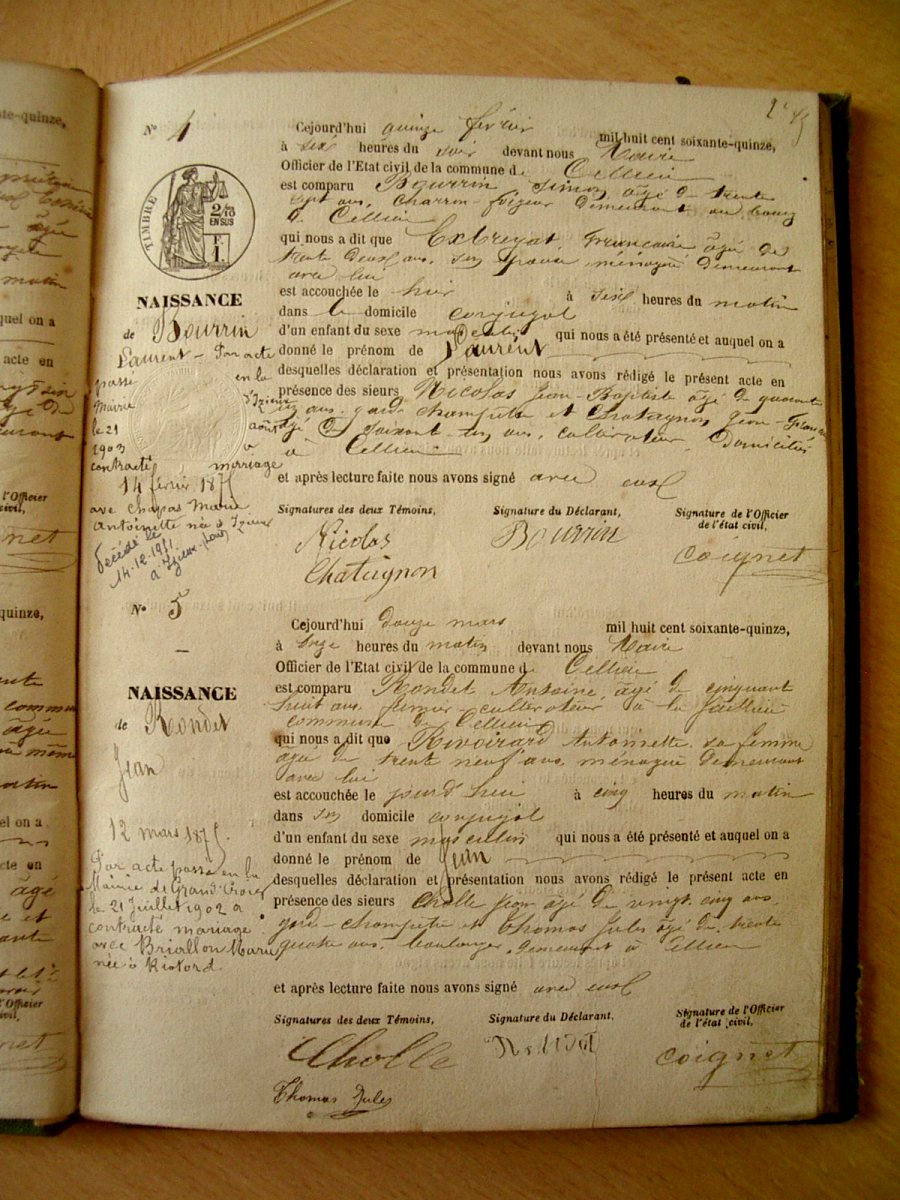 Nº 4
TIMBRE
2/10
EN SUS
F.
1.
NAISSANCE
de Bourrin
Laurent - Par acte
passé en la
Mairie d'Izieux
le 21 août
1903 a
contracté mariage
14 février 1875
avec Chapas Marie
Antoinette née à Izieux
Décédé le
14.12.1951
à Izieux
Cejourd'hui quinze février mil huit cent soixante-quinze,
à six heures du soir devant nous Maire
Officier de l'Etat civil de la commune d Cellieu
est comparu Bourrin Simon âgé de trente
sept ans, charron-forgeur demeurant au bourg
d Cellieu
qui nous a dit que Extrayat Françoise âgée de
trente deux ans, son épouse ménagère demeurant
avec lui
est accouchée le hier à six heures du matin
dans le domicile conjugal
d'un enfant du sexe masculin qui nous a été présenté et auquel on a
donné le prénom de Laurent
desquelles déclaration et présentation nous avons rédigé le présent acte en
présence des sieurs Nicolas Jean-Baptiste âgé de quarante
ans, garde champêtre et Chatagnon Jean-
âgé de soixante ans, cultivateur domiciliés
à Cellieu
et après lecture faite nous avons signé avec eux
Signatures des deux Témoins, Signature du Déclarant, Signature de l'Officier
de l'état civil,
Nicolas Bourrin Coignet
Chatagnon
Nº 5
NAISSANCE
de Rondet
Jean
12 mars 1875.
Par acte passé en la
Mairie de Grand'Croix
le 21 Juillet 1902 a
contracté mariage
avec Briallon Marie
née à Riotord
Cejourd'hui douze mars mil huit cent soixante-quinze,
à onze heures du matin devant nous Maire
Officier de l'Etat civil de la commune d Cellieu
est comparu Rondet Antoine, âgé de cinquante
huit ans fermier cultivateur à la
commune de Cellieu
qui nous a dit que Rivoirard Antoinette sa femme
âgée de trente neuf ans, ménagère demeurant
avec lui
est accouchée le jourd'hui à cinq heures du matin
dans son domicile conjugal
d'un enfant du sexe masculin qui nous a été présenté et auquel on a
donné le prénom de Jean
desquelles déclaration et présentation nous avons rédigé le présent acte en
présence des sieurs Cholle Jean âgé de vingt cinq ans
garde-champêtre et Thomas Jules âgé de trente
quatre ans, boulanger, demeurant à Cellieu
et après lecture faite nous avons signé avec eux
Signatures des deux Témoins, Signature du Déclarant, Signature de l'Officier
de l'état civil,
Cholle Coignet
Thomas Jules